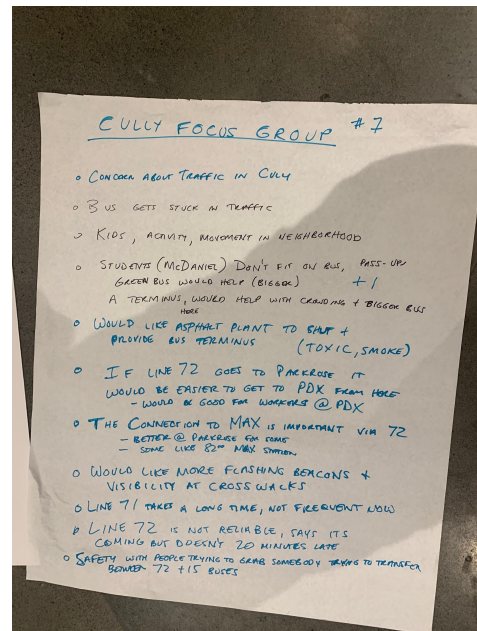 CULLY FOCUS GROUP #7
o CONCERN ABOUT TRAFFIC IN CULLY
o BUS GETS STUCK IN TRAFFIC
o KIDS, ACTIVITY, MOVEMENT IN NEIGHBORHOOD
o STUDENTS (MCDANIEL) DON'T FIT ON BUS, PASS-UPS
GREEN BUS WOULD HELP (BIGGER) +1
A TERMINUS, WOULD HELP WITH CROWDING + BIGGER BUS
HERE
o WOULD LIKE ASPHALT PLANT TO SHUT +
PROVIDE BUS TERMINUS (TOXIC, SMOKE)
o IF LINE 72 GOES TO PARKROSE IT
WOULD BE EASIER TO GET TO PDX FROM HERE
- WOULD BE GOOD FOR WORKERS @ PDX
o THE CONNECTION TO MAX IS IMPORTANT VIA 72
- BETTER @ PARKROSE FOR SOME
- SOME LIKE 82ND MAX STATION
o WOULD LIKE MORE FLASHING BEACONS +
VISIBILITY AT CROSSWALKS
o LINE 71 TAKES A LONG TIME, NOT FREQUENT NOW
o LINE 72 IS NOT RELIABLE, SAYS ITS
COMING BUT DOESN'T 20 MINUTES LATE
o SAFETY WITH PEOPLE TRYING TO GRAB SOMEBODY TRYING TO TRANSFER
BETWEEN 72 + 15 BUSES